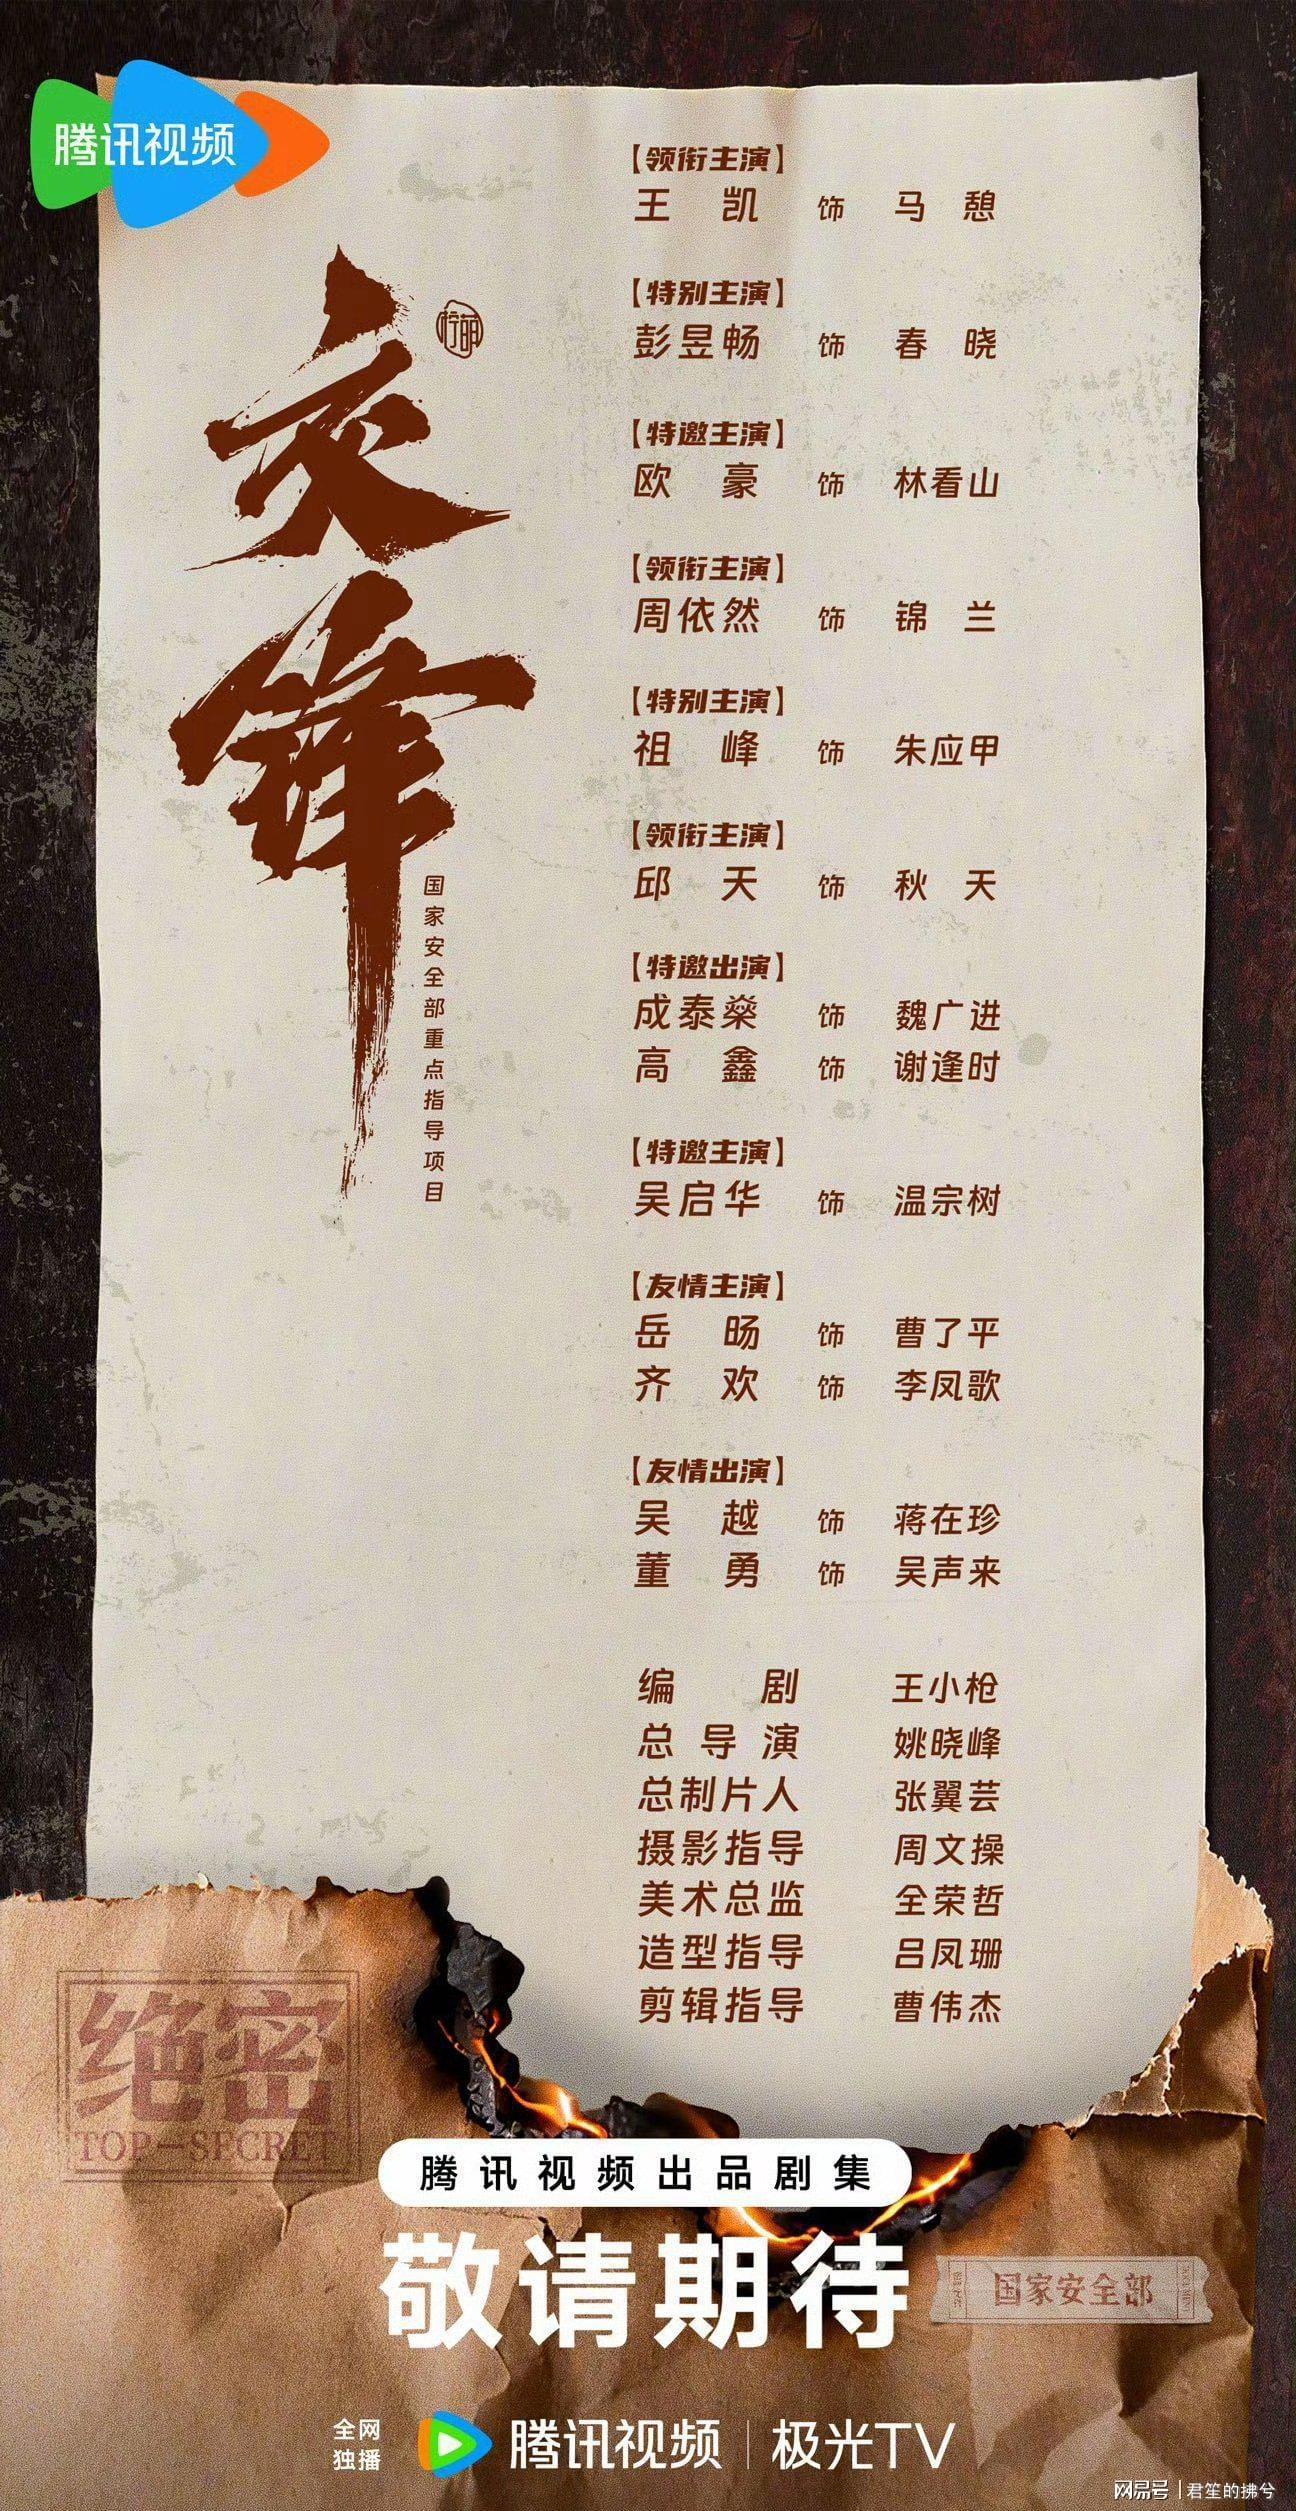 腾讯视频
交锋
柠萌
国家安全部重点指导项目
【领衔主演】
王凯 饰 马憩
【特别主演】
彭昱畅 饰 春晓
【特邀主演】
欧豪 饰 林看山
【领衔主演】
周依然 饰 锦兰
【特别主演】
祖峰 饰 朱应甲
【领衔主演】
邱天 饰 秋天
【特邀出演】
成泰燊 饰 魏广进
高鑫 饰 谢逢时
【特邀主演】
吴启华 饰 温宗树
【友情主演】
岳旸 饰 曹了平
齐欢 饰 李凤歌
【友情出演】
吴越 饰 蒋在珍
董勇 饰 吴声来
编剧 王小枪
总导演 姚晓峰
总制片人 张翼芸
摄影指导 周文操
美术总监 全荣哲
造型指导 吕凤珊
剪辑指导 曹伟杰
绝密
TOP-SECRET
腾讯视频出品剧集
敬请期待
国家安全部
全网
独播
腾讯视频 | 极光TV
网易号 | 君笙的拂兮